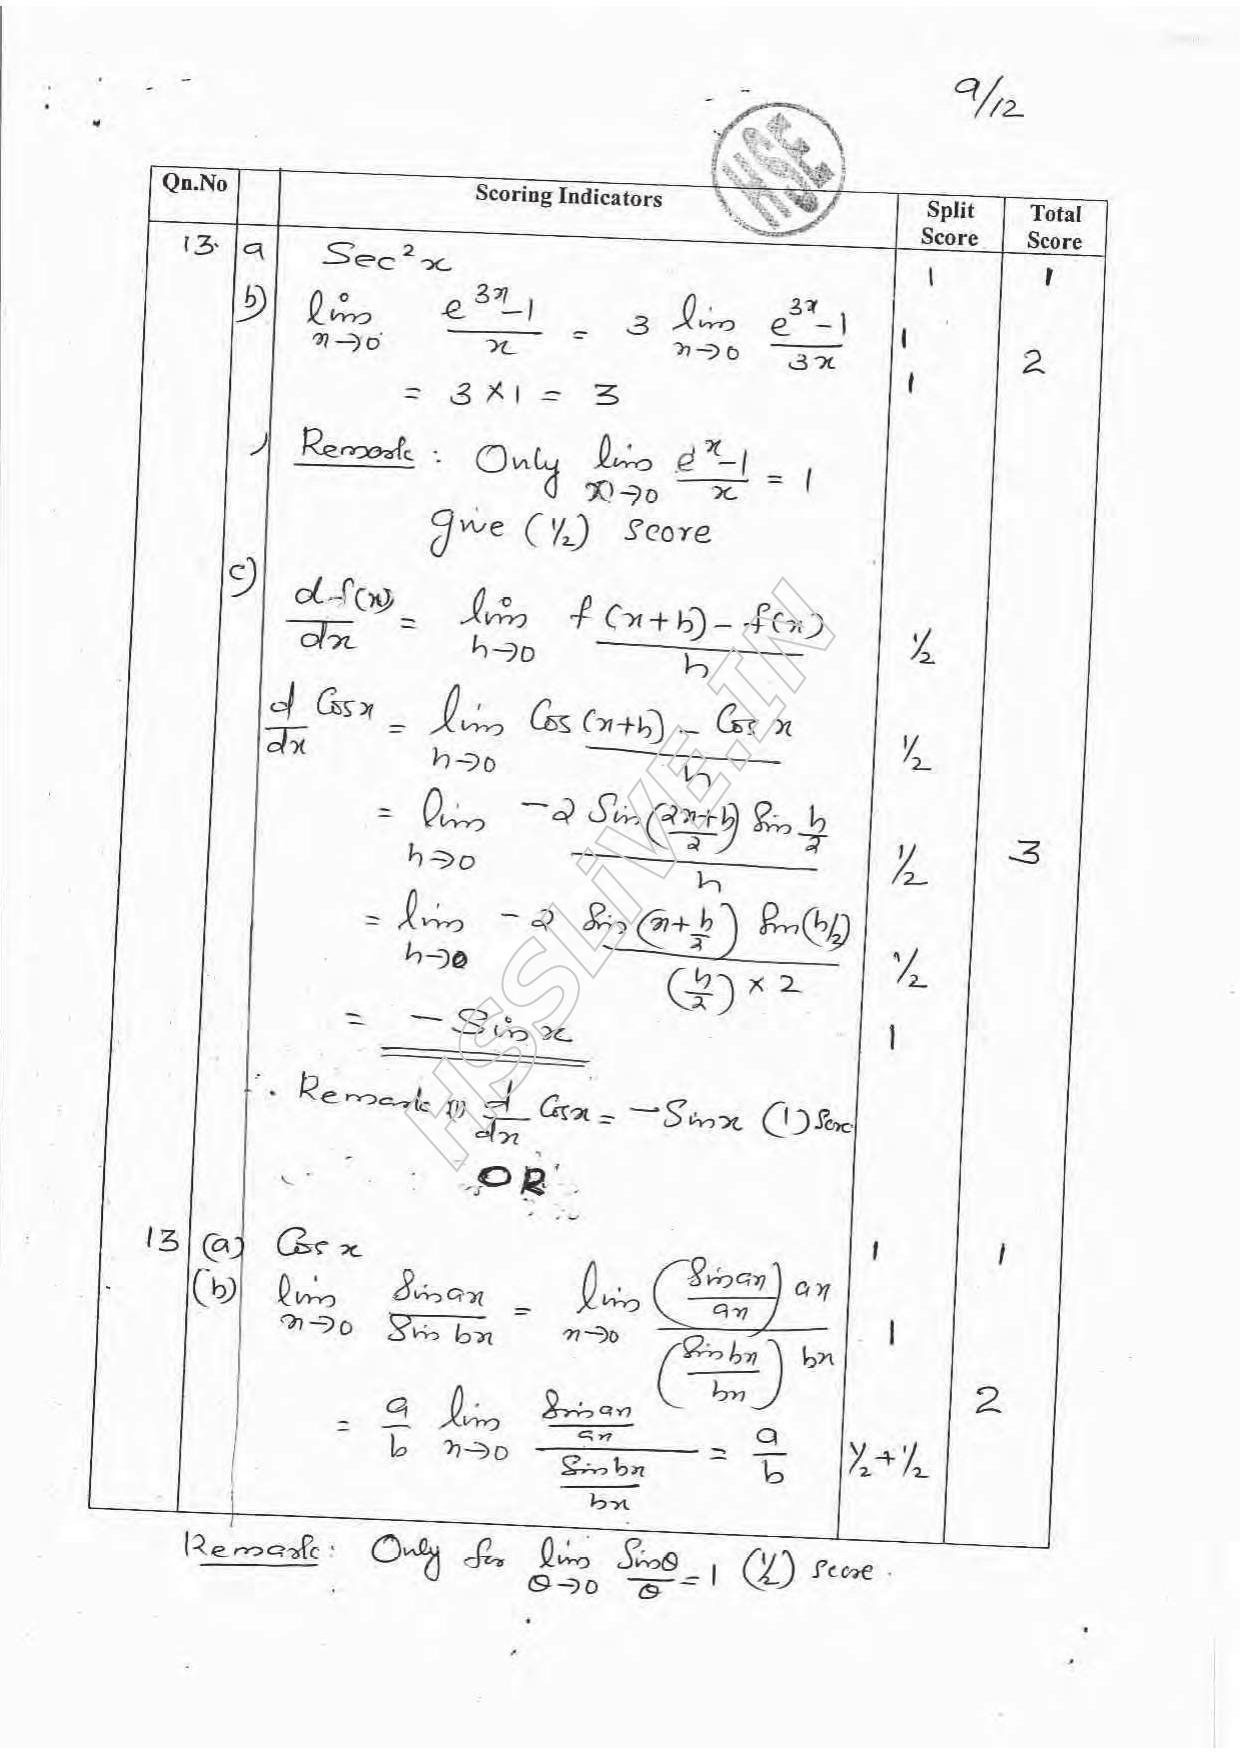 9/12
HSE
Qn.No Scoring Indicators Split Score Total Score
13. a Sec²x 1 1
b) lim x→0 (e^3x - 1)/x = 3 lim x→0 (e^3x - 1)/3x 1 2
= 3 × 1 = 3 1
Remark : Only lim x→0 (e^x - 1)/x = 1
give (½) score
c) d f(x)/dx = lim h→0 (f(x+h) - f(x))/h ½
d/dx Cos x = lim h→0 (Cos(x+h) - Cos x)/h ½
= lim h→0 (-2 Sin((2x+h)/2) Sin h/2)/h ½ 3
= lim h→0 (-2 Sin(x + h/2) Sin(h/2))/((h/2) × 2) ½
= - Sin x 1
Remark (1) d/dx Cos x = - Sin x (1) Score
OR
13 (a) Cos x 1 1
(b) lim x→0 Sin ax/Sin bx = lim x→0 ((Sin ax/ax) ax)/((Sin bx/bx) bx) 1
= a/b lim x→0 (Sin ax/ax)/(Sin bx/bx) = a/b ½ + ½ 2
Remark : Only for lim θ→0 Sin θ/θ = 1 (½) score.
HSSLiVE.IN